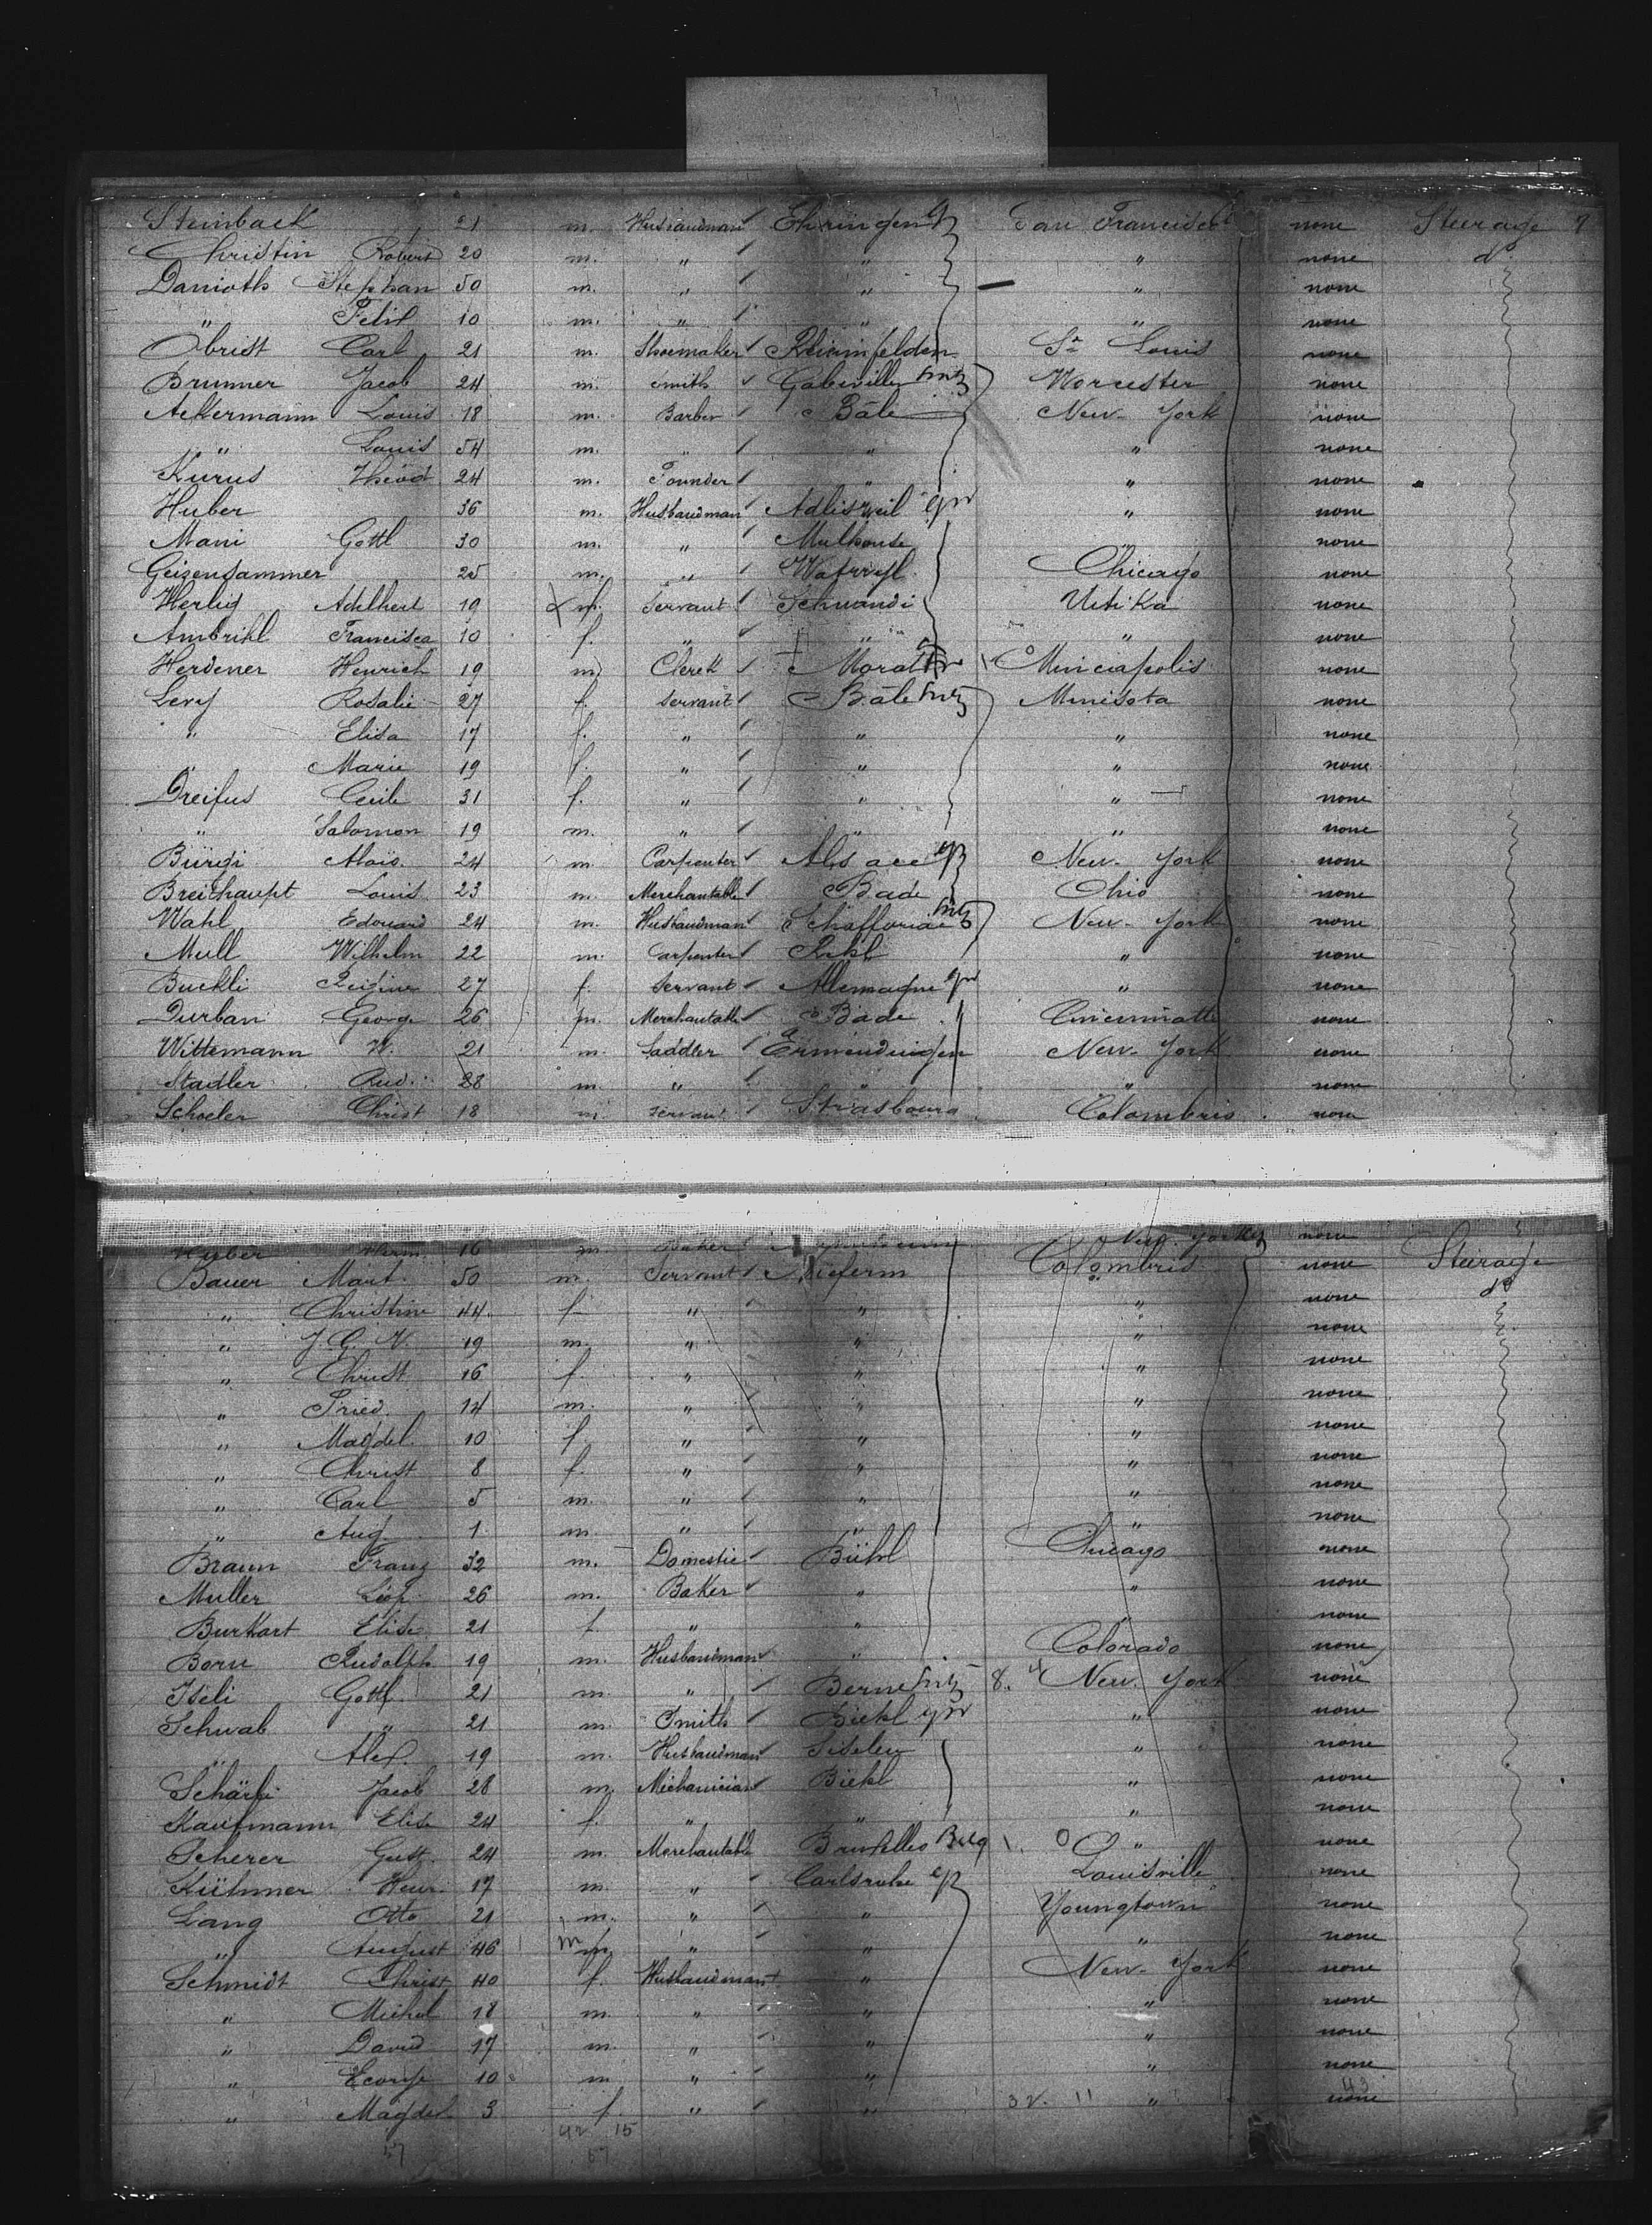 Steinback 21 m. Husbandman Ehringen San Francisco none Steerage
Christin Robert 20 m. " " " none do
Danioth Stephan 50 m. " " " none
" Felix 10 m. " " " none
Obrist Carl 21 m. Shoemaker Rheinfelden St Louis none
Brunner Jacob 24 m. Smith Gabeviller Worcester none
Ackermann Louis 18 m. Barber Bâle New-York none
" Louis 54 m. " " " none
Kurus Théod 24 m. Founder " " none
Huber 36 m. Husbandman Adlisweil " none
Mani Gottl 30 m. " Mulhouse " none
Geizendammer 25 m. " Chicago none
Herlig Adelheit 19 f. Servant Schwandi Utika none
Ambrihl Francisca 10 f. " " " none
Herdener Henrich 19 m. Clerck Morat Mineiapolis none
Levy Rosalie 27 f. servant Bâle Minisota none
" Elisa 17 f. " " " none
" Marie 19 f. " " " none
Dreifus Cecile 31 f. " " " none
" Salomon 19 m. " " " none
Bürgi Aloïs. 24 m Carpenter Alsace New-York none
Breithaupt Louis 23 m. Merchantable Bade Ohio none
Wahl Edouard 24 m. Husbandman New-York none
Mull Wilhelm 22 m. Carpenter " none
Buckli 27 f. Servant Allemagne " none
Durban George 26 m. Merchantable Bade Cincinnatti none
Wittemann W. 21 m. Saddler Ermendingen New-York none
Stadler Rud. 28 m. " " none
Schoeler Christ 18 m. servant Strasbourg Colombris none
Huber Herm. 16 m. Baker New-York none
Bauer Mart. 50 m. Servant Colombris none Steerage
" Christine 44 f. " " " none do
" 19 m. " " " none
" Christ 16 f. " " " none
" Fried. 14 m. " " " none
" Magdel. 10 f. " " " none
" Christ 8 f. " " " none
" Carl 5 m. " " " none
" Aug 1 m. " " " none
Braun Franz 32 m. Domestic Bühl Chicago none
Muller Léop. 26 m. Baker " " none
Burkart Elise 21 f. " " " none
Born Rudolph 19 m. Husbandman " Colorado none
Iseli Gottl. 21 m. " Berne New-York none
Schwab " 21 m. Smith Biehl " none
" Alex. 19 m. Husbandman Siselen " none
Schärli Jacob 28 m. Mechanician Biehl " none
Kaufmann Elise 24 f. " " " none
Scherer Gust. 24 m. Merchantable Bruxelles Belg " none
Kühner Henr. 17 m. " Carlsruhe Louisville none
Lang Otto 21 m. " " Youngtown none
" August 46 m " " " none
Schmidt Christ 40 f. Husbandman " New-York none
" Michel 18 m. " " " none
" David 17 m. " " " none
" 10 m " " " none
" Magdel 3 f. " " " none
57 42 15 57 32. 11 43